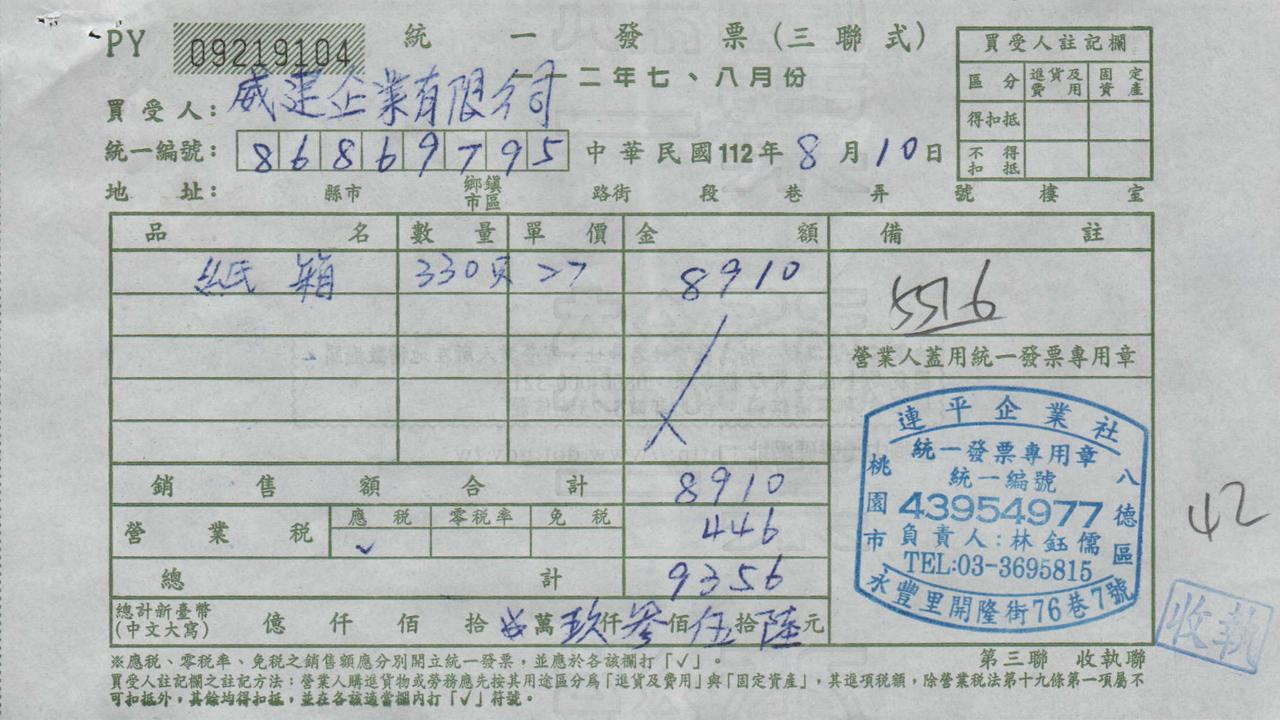 PY 09219104
統一發票(三聯式)
一一二年七、八月份
買受人: 威建企業有限公司
統一編號: 86869795 中華民國112年8月10日
地址: 縣市 鄉鎮市區 路街 段 巷 弄 號 樓 室
買受人註記欄
區分 進貨及費用 固定資產
得扣抵
不得扣抵
品名 數量 單價 金額 備註
紙箱 330 27 8910
5516
營業人蓋用統一發票專用章
銷售額合計 8910
營業稅 應稅 ✓ 零稅率 免稅 446
總計 9356
總計新臺幣(中文大寫) 億 仟 佰 拾 萬 玖仟參佰伍拾陸元
連平企業社
統一發票專用章
統一編號
43954977
負責人:林鈺儒
TEL:03-3695815
桃園市
八德區
永豐里開隆街76巷7號
42
收執
第三聯 收執聯
※應稅、零稅率、免稅之銷售額應分別開立統一發票,並應於各該欄打「✓」。
買受人註記欄之註記方法:營業人購進貨物或勞務應先按其用途區分為「進貨及費用」與「固定資產」,其進項稅額,除營業稅法第十九條第一項屬不
可扣抵外,其餘均得扣抵,並在各該適當欄內打「✓」符號。